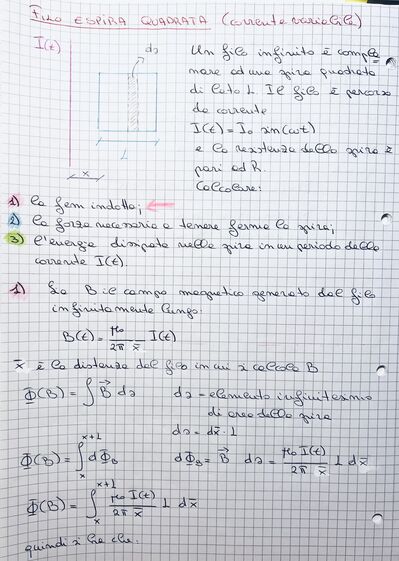 FILO ESPIRA QUADRATA (corrente variabile)
I(t)
da
Un filo infinito è compla
nare ad una spira quadrata
di lato L. Il filo è percorso
da corrente
I(t) = I₀ sin(ωt)
e la resistenza della spira è
pari ad R.
Calcolare:
L
x
1) la fem indotta;
2) la forza necessaria a tenere ferma la spira;
3) l'energia dissipata nella spira in un periodo della
corrente I(t).
1) Sia B il campo magnetico generato dal filo
infinitamente lungo:
B(t) = μ₀/2π x̄ I(t)
x̄ è la distanza dal filo in cui si calcola B
Φ(B) = ∫ B⃗ da
da = elemento infinitesimo
di area della spira
da = dx̄ · L
Φ(B) = ∫ₓˣ⁺ᴸ dΦ_B
dΦ_B = B⃗ da = μ₀ I(t)/2π x̄ L dx̄
Φ(B) = ∫ₓˣ⁺ᴸ μ₀ I(t)/2π x̄ L dx̄
quindi si ha che: